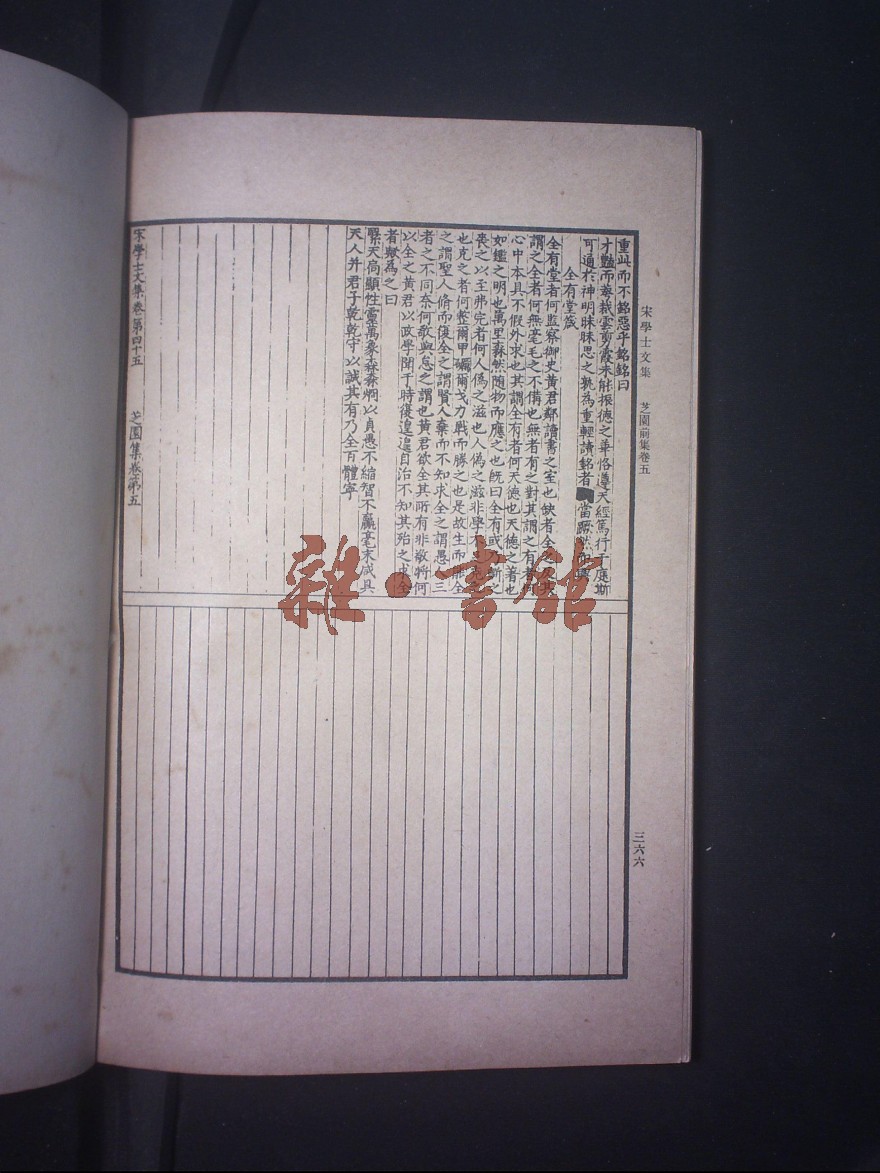 宋學士文集　芝園前集卷五
重此而不銘惡乎銘銘曰
才豔而葩裁雲剪霞未能振德之華恪遵天經篤行于庭斯
可通於神明昧昧思之孰為重輕讀銘者當
全有堂箴
全有堂者何監察御史黃君鄰讀書之室也
謂之全者何無毫毛之不備也無者有之對其謂之有者何
心中本具不假外求也其謂全有者何天德也天德之著也
如鑑之明也萬里森然隨物而應之也既曰全有或
喪之以至弗完者何人偽之滋也人偽之滋非學不
也克之者何整爾甲礪爾戈力戰而勝之也是故生而能全
之謂聖人脩而復全之謂賢人棄而不知求全之謂愚人三
者之不同奈何敬與怠之謂也黃君欲全其所有非敬將何
以全之黃君以政學聞于時復遑遑自治不知其殆之求全
者歟為之曰
緊天高顯性靈萬象森森炯以貞愚不縮智不贏毫末咸具
天人并君子乾乾守以誠其有乃全百體寧
宋學士文集卷第四十五　芝園集卷第五
三六六
雜·書館